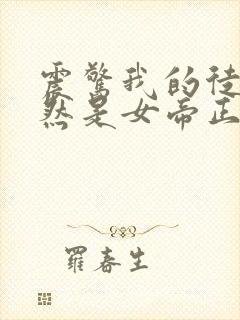 震驚我的徒
然是女帝正
羅春生